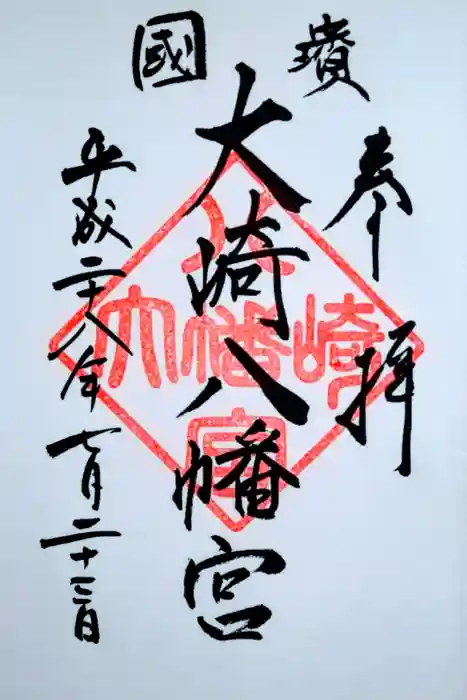 國
奉拝
大崎八幡宮
平成二十八年七月二十三日
大崎八幡宮